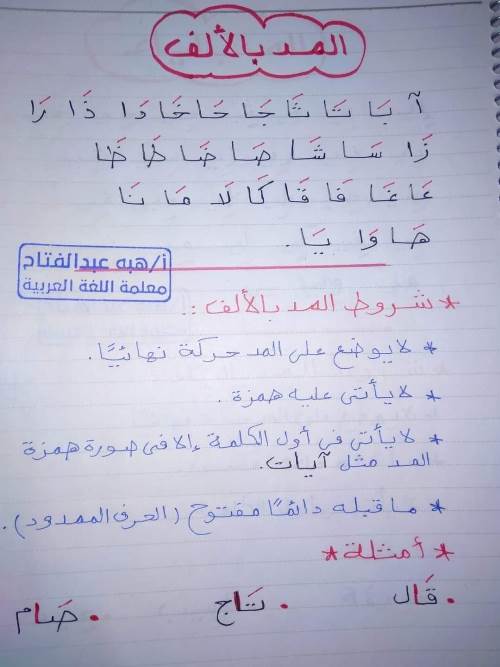 المد بالألف
آ بَا تَا ثَا جَا حَا خَا دَا ذَا رَا
زَا سَا شَا صَا ضَا طَا ظَا
عَا غَا فَا قَا كَا لَا مَا نَا
هَا وَا يَا.
أ/هبه عبدالفتاح
معلمة اللغة العربية
* شروط المد بالألف :!
* لا يوضع على المد حركة نهائيًا.
* لا يأتى عليه همزة .
* لا يأتى فى أول الكلمة إلا فى صورة همزة
المد مثل آيات.
* ما قبله دائمًا مفتوح (الحرف الممدود).
* أمثلة *
• قَال • تَاج • صَام